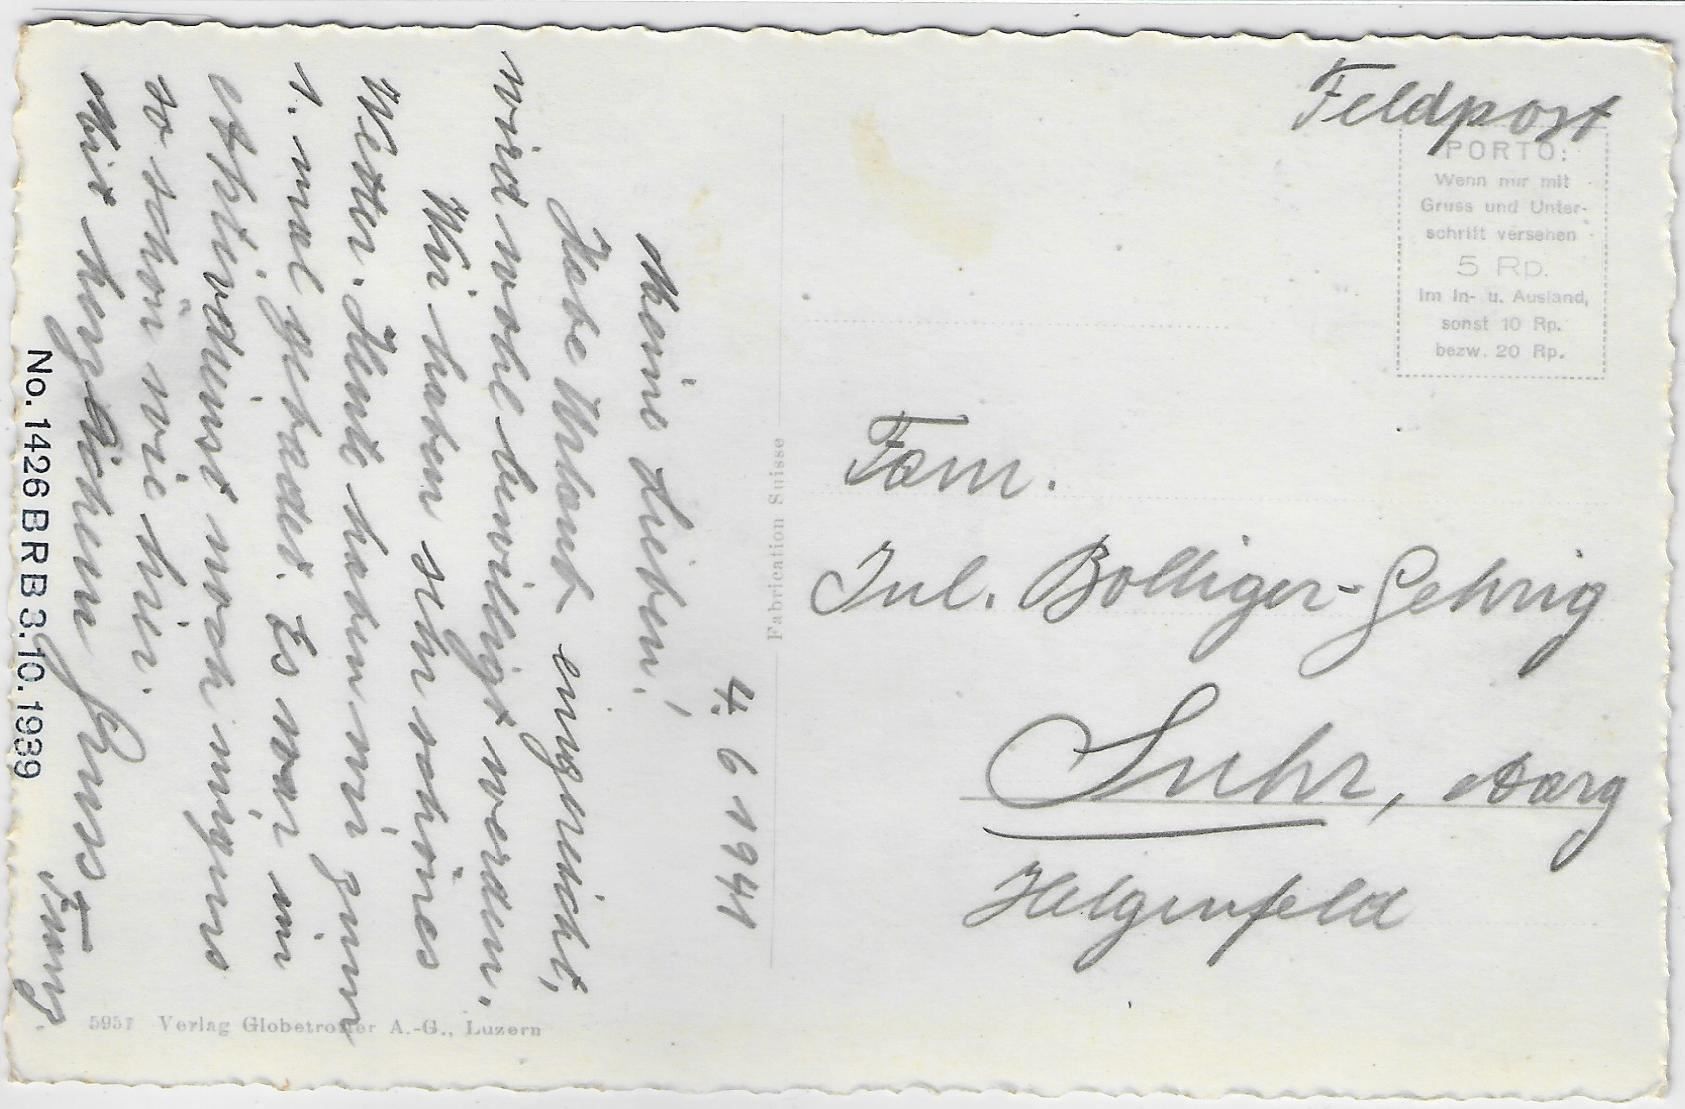 4. 6 1941
Meine Lieben!
Habe Urlaub eingereicht,
wird wohl bewilligt werden.
Wir haben sehr schönes
Wetter. Heute haben wir zum
1. mal gebadet. Es war im
Aktivdienst noch nirgens
so schön wie hier.
Mit herzlichem Gruss
Franz
No. 1426 B R B 3.10.1939
5957 Verlag Globetrotter A.-G., Luzern
Fabrication Suisse
Feldpost
PORTO:
Wenn nur mit
Gruss und Unter-
schrift versehen
5 Rp.
im In- u. Ausland,
sonst 10 Rp.
bezw. 20 Rp.
Fam.
Jul. Bolliger-Gehrig
Suhr, Aarg
Helgenfeld